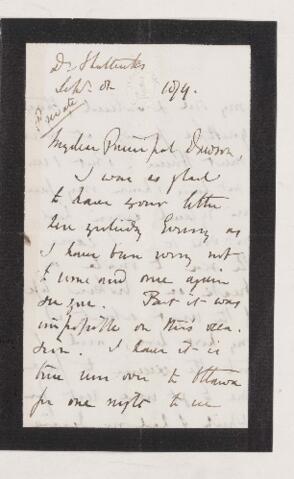 Dr Shattucks
Feb. 8. 1879.
Private
My dear Principal Dawson,
I was as glad
to have your letter
here yesterday Evening as
I have been sorry not
to come and once again
see you. But it was
impossible on this occa-
sion. I have it is
true run over to Ottawa
for one night to see